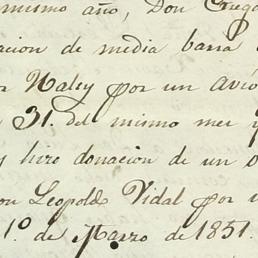 mismo año, Don Grego
acion de media barra
Haley por un avío
31. del mismo mes y
y hizo donacion de un
on Leopoldo Vidal por
1.º de Marzo de 1851.